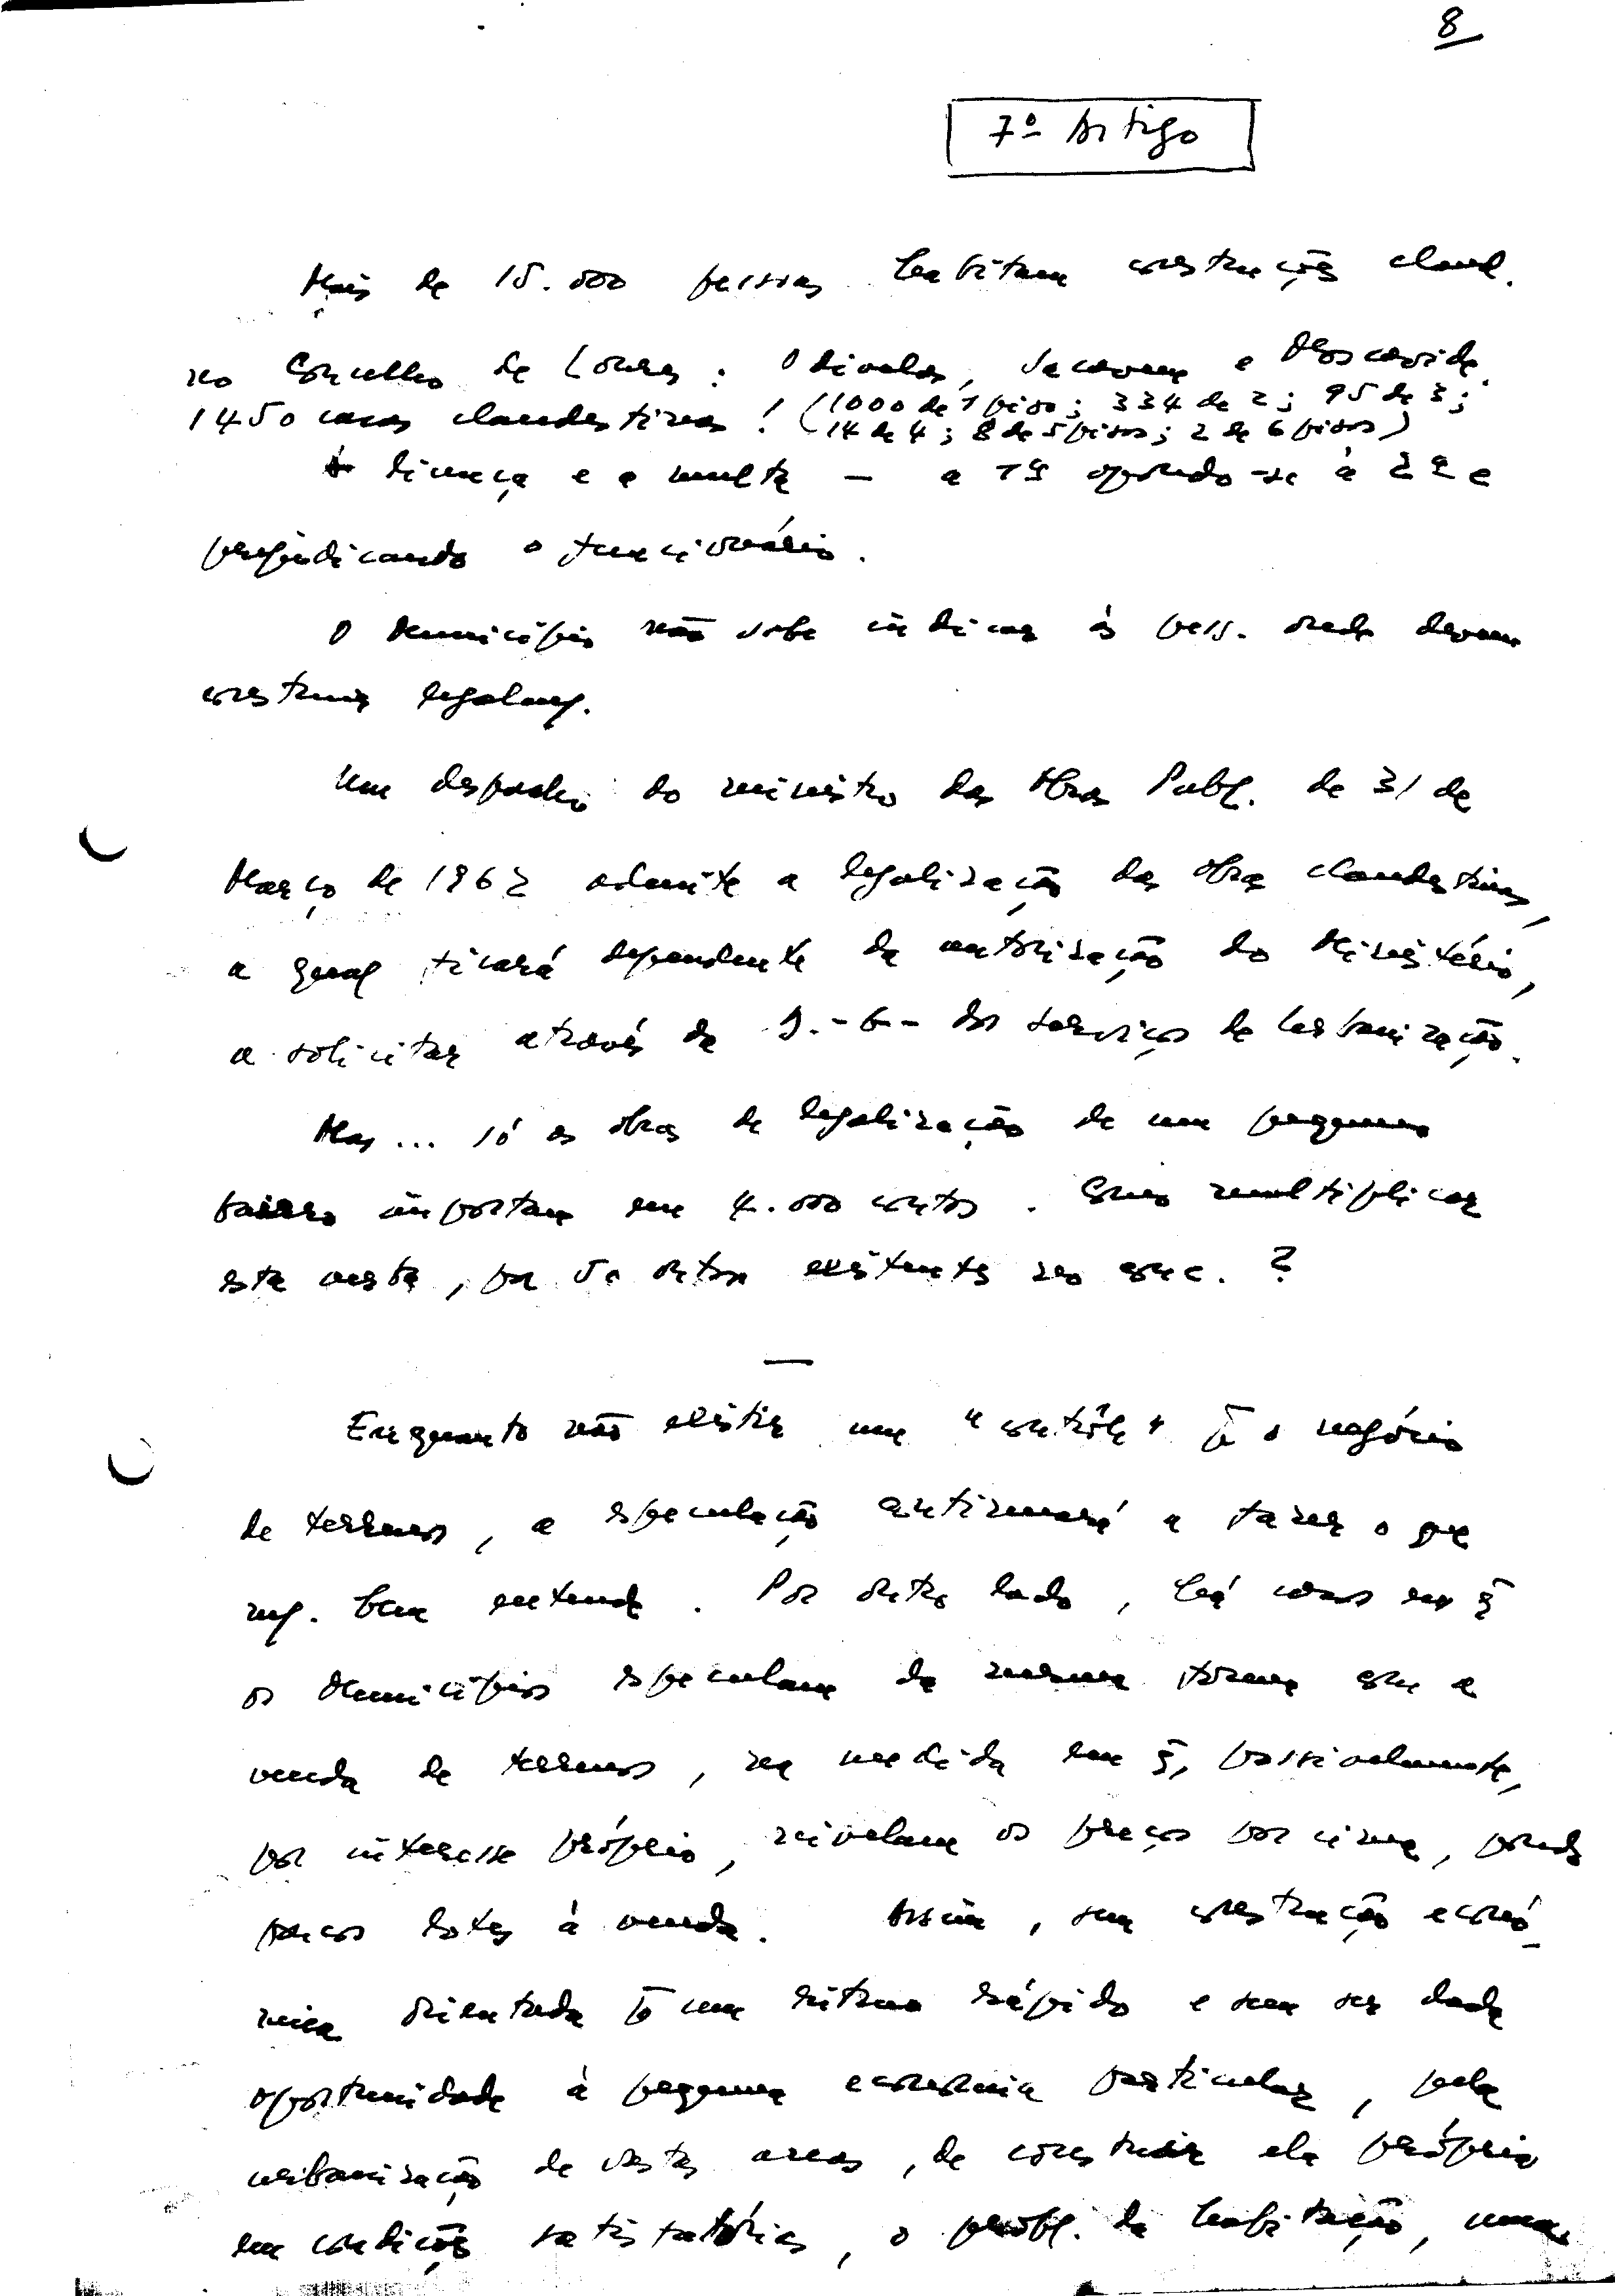 8
7º Artigo
Mais de 15.000 pessoas habitam construções cland.
no Concelho de Loures: Odivelas, Sacavem e Moscavide.
1450 casas clandestinas! (1000 de 1 piso; 334 de 2; 95 de 3;
14 de 4; 8 de 5 pisos; 2 de 6 pisos)
A licença e a multa — a 1ª opondo-se à 2ª e
prejudicando o funcionário.
O Município não sabe indicar às pess. onde devem
construir legalmente.
Um despacho do ministro das Obras Publ. de 31 de
Março de 1962 admite a legalização das obras clandestinas,
a qual ficará dependente da autorização do Ministério,
a solicitar através da D.-G- dos serviços de Urbanização.
Mas... só as obras de legalização de um pequeno
bairro importam em 4.000 contos. Como multiplicar
esta verba, por 50 outros existentes no conc.?
Enquanto não existir um "contrôle" p̄ o negócio
de terrenos, a especulação continuará a fazer o que
mt. bem entende. Por outro lado, há casos em q̄
os Municípios especulam da mesma forma com a
venda de terrenos, na medida em q̄, possivelmente,
por interesse próprio, nivelam os preços por cima, pondo
poucos lotes à venda. Assim, sem construção econó-
mica orientada p̄ um ritmo rápido e sem ser dada
oportunidade à pequena economia particular, pela
urbanização de vastas areas, de construir ela própria
em condições satisfatórias, o probl. da habitação, numa